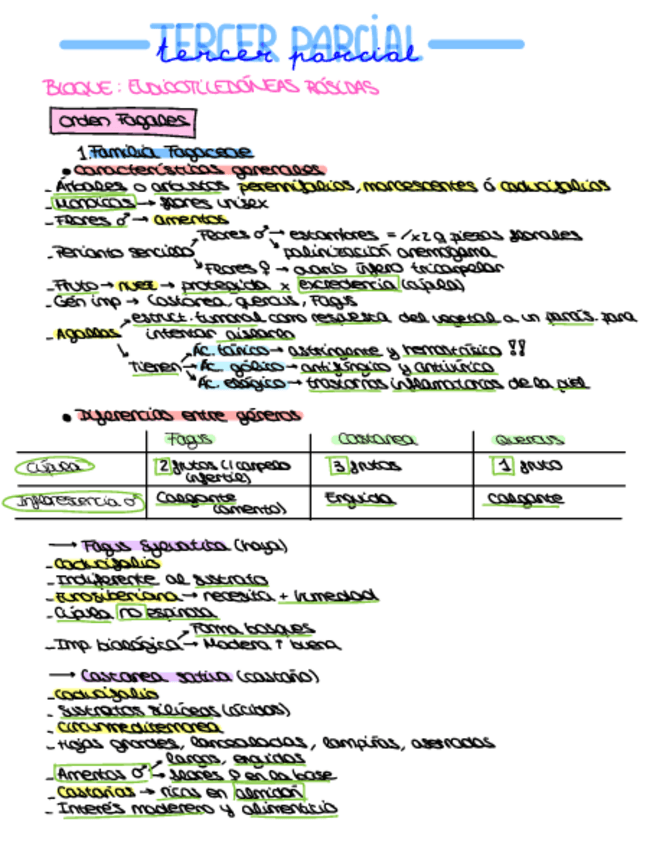 TERCER PARCIAL
tercer parcial
BLOQUE: EUDICOTILEDÓNEAS RÓSIDAS
Orden Fagales
1. Familia Fagaceae
• Características generales
- Árboles o arbustos perennifolios, marcescentes ó caducifolios
- Monoicas → flores unisex
- Flores ♂ → amentos
- Perianto sencillo
Flores ♂ → estambres = / x2 q piezas florales
polinización anemógama
Flores ♀ → ovario ínfero tricarpelar
- Fruto → nuez → protegida x excrecencia (cúpula)
- Gén imp → Castanea, Quercus, Fagus
- Agallas
estruct. tumoral como respuesta del vegetal a un parás. para
intentar aislarlo
Tienen
Ác. tánico → astringente y hemostático !!
Ác. gálico → antifúngico y antivírico
Ác. elágico → trastornos inflamatorios de la piel
• Diferencias entre géneros
Fagus Castanea Quercus
Cúpula 2 frutos (1 carpelo infértil) 3 frutos 1 fruto
Inflorescencia ♂ Colgante (amento) Erguida Colgante
→ Fagus sylvatica (haya)
- Caducifolio
- Indiferente al sustrato
- Eurosiberiana → necesita + humedad
- Cúpula no espinosa
- Imp. biológica
Forma bosques
Madera ↑ buena
→ Castanea sativa (castaño)
- Caducifolio
- Sustratos silíceos (ácidos)
- Circunmediterránea
- Hojas grandes, lanceoladas, lampiñas, aserradas
- Amentos ♂
largos, erguidos
flores ♀ en la base
- Castañas → ricas en almidón
- Interés maderero y alimenticio